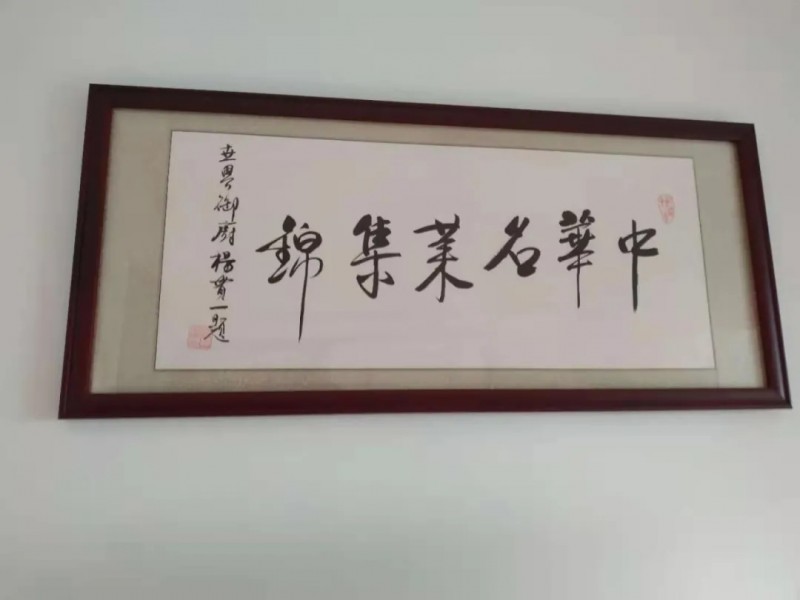 中華名菜集錦
世界御廚楊貫一題